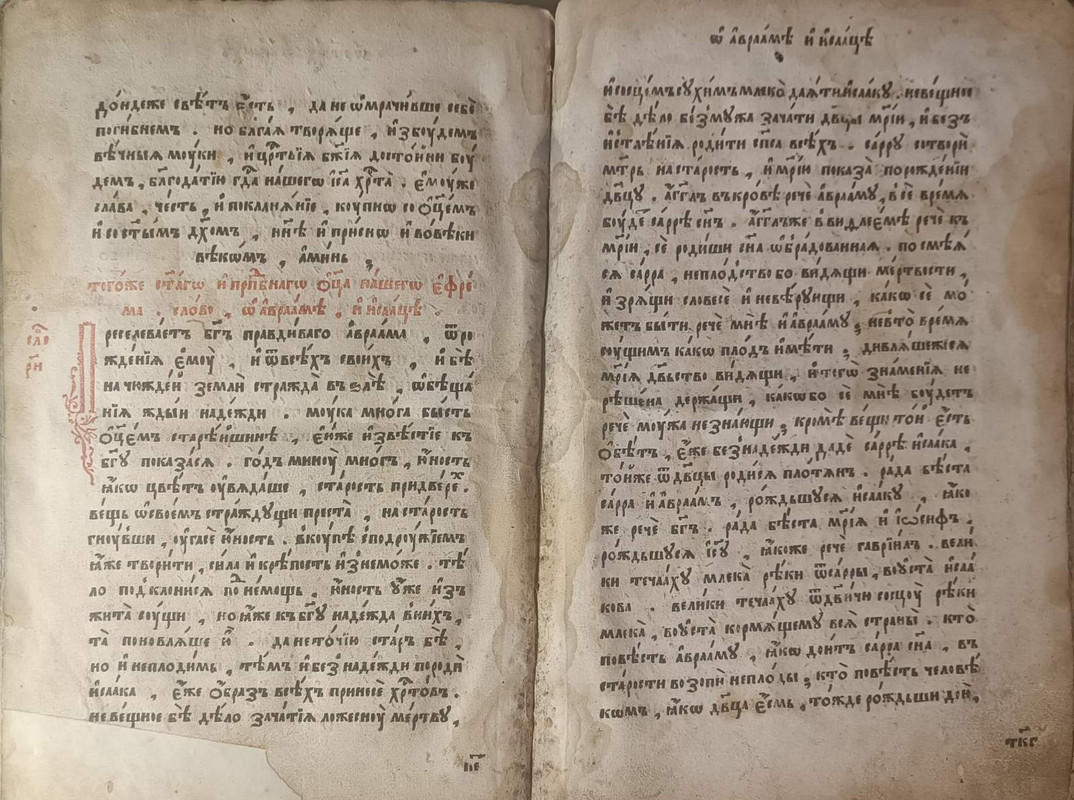 до́ндеже свѣ́тъ є҆́сть , да не ѡ҆мрачи́вше себѐ
поги́бнемъ . но бл҃га́ѧ творѧ́ще , и҆збꙋ́демъ
вѣ́чныѧ мꙋ́ки , и҆ црⷭ҇твїѧ бж҃їѧ досто́йни бꙋ́
демъ , блг҃ода́тїю гдⷭ҇а на́шегѡ і҆с҃а хрⷭ҇та̀ . є҆мꙋ́же
сла́ва , че́сть , и҆ покланѧ́нїе , кꙋ́пнѡ со ѻ҆ц҃е́мъ
и҆ со ст҃ы́мъ дх҃омъ , нн҃ѣ и҆ при́снѡ и҆ во вѣ́ки
вѣкѡ́мъ , а҆ми́нь ,
того́же ст҃а́гѡ и҆ прпⷣбнагѡ ѻ҆ц҃а̀ на́шегѡ є҆фре́
ма . сло́во , ѡ҆ а҆враа́мѣ , и҆ и҆саа́цѣ .
сло́
рг҃и
Преселева́етъ бг҃ъ пра́вдиваго а҆враа́ма , ѿ ро
жде́нїѧ є҆мꙋ̀ , и҆ ѿ всѣ́хъ свои́хъ , и҆ бѣ̀
на чꙋжде́й землѝ стра́жда въ ѕлѣ̀ , ѡ҆бѣща́
нїѧ жды́й наде́жди . мꙋ́ка мно́га бы́сть
ѻ҆ц҃е́мъ старѣ́йшинѣ , є҆ю́же и҆звѣ́стїе къ
бг҃ꙋ показа́сѧ . го́дъ минꙋ̀ мно́гъ , ю҆́ность
ꙗ҆́кѡ цвѣ́тъ ᲂу҆вѧ́даше , ста́рость придвереⷯ .
ве́щь ѡ҆ свое́мъ стра́ждꙋщи преста̀ , на ста́рость
гнꙋ́вши , ᲂу҆гасе ю҆́ность . вкꙋ́пѣ с подрꙋ́жїемъ
ꙗ҆́же твори́ти , си́ла и҆ крѣ́пость и҆знемо́же . тѣ́
ло подклони́сѧ под не́мощь , ю҆́ность ᲂу҆́же и҆зъ
жита̀ сꙋ́щи , но ꙗ҆́же къ бг҃ꙋ наде́жда в ни́хъ ,
та̀ поновлѧ́ше ю҆̀ . да не то́чїю ста́ръ бѣ̀ ,
но и҆ непло́димь , тѣ́мъ и҆ без наде́жди породѝ
и҆саа́ка , є҆́же ѻ҆́бразъ всѣ́хъ принесѐ хрⷭ҇то́въ .
неве́щное бѣ̀ дѣ́ло зача́тїѧ ложеснꙋ̀ ме́ртвꙋ ,
ѡ҆ а҆враа́мѣ и҆ и҆саа́цѣ
и҆ сосце́мъ сꙋхи́мъ млеко̀ даѧ́ти и҆саа́кꙋ . неве́щное
бѣ̀ дѣ́ло без мꙋ́жа зача́ти дв҃цы мр҃їи , и҆ безъ
и҆стлѣ́нїѧ роди́ти сп҃са всѣ́хъ . са́ррꙋ сотворѝ
мт҃рь на ста́рость , и҆ мр҃їю показа̀ по рожде́нїи
дв҃цꙋ . а҆́гг҃лъ въ кро́вѣ речѐ а҆враа́мꙋ , в сѐ вре́мѧ
бꙋ́детъ са́ррѣ сн҃ъ . а҆́гг҃лъ же в видѧ́емѣ речѐ къ
мр҃їи , сѐ роди́ши сн҃а ѡ҆бра́дованнаѧ . посмѣѧ́
сѧ са́рра , непло́дство бо ви́дѧщи ме́ртвости ,
и҆ зрѧ́щи словесѐ и҆ невѣ́рꙋющи , ка́кѡ сѐ мо́
жетъ бы́ти речѐ мнѣ̀ и҆ а҆враа́мꙋ ; не в то̀ вре́мѧ
сꙋ́щимъ ка́кѡ пло́дъ и҆мѣ́ти ; дивлѧ́шесѧ
мр҃їѧ дв҃ьство ви́дѧщи , и҆ тогѡ̀ зна́менїѧ не
рѣше́на держа́щи , ка́кѡ бо сѐ мнѣ̀ бꙋ́детъ
речѐ мꙋ́жа не зна́ющи ; кромѣ̀ ве́щи то́и є҆́сть
ѻ҆бѣ́тъ , є҆́же без наде́жди дадѐ са́ррѣ и҆саа́ка ,
то́йже ѿ дв҃цы роди́сѧ пло́тѧнъ . ра́да бѣ́ста
са́рра и҆ а҆враа́мъ , ро́ждьшꙋсѧ и҆саа́кꙋ , ꙗ҆́ко
же речѐ бг҃ъ . ра́да бѣ́ста мр҃їѧ и҆ і҆ѡ́сифъ ,
ро́ждьшꙋсѧ і҆с҃ꙋ , ꙗ҆́коже речѐ гаврїи́лъ . вели́
ки теча́хꙋ млека̀ рѣ́ки ѿ са́рры , во ᲂу҆ста̀ и҆саа́
кова . вели́ки теча́хꙋ ѿ дв҃ичи сосцꙋ̀ рѣ́ки
млека̀ , во ᲂу҆ста̀ ко́рмѧщемꙋ всѧ̀ страны̀ . кто̀
повѣ́сть а҆враа́мꙋ , ꙗ҆́кѡ дои́тъ са́рра сн҃а , въ
ста́рости возопѝ непло́ды ; кто̀ повѣ́сть человѣ́
кѡмъ , ꙗ҆́кѡ дв҃ца є҆́смь , то́жде ро́ждьши дою̀ ,
ткг